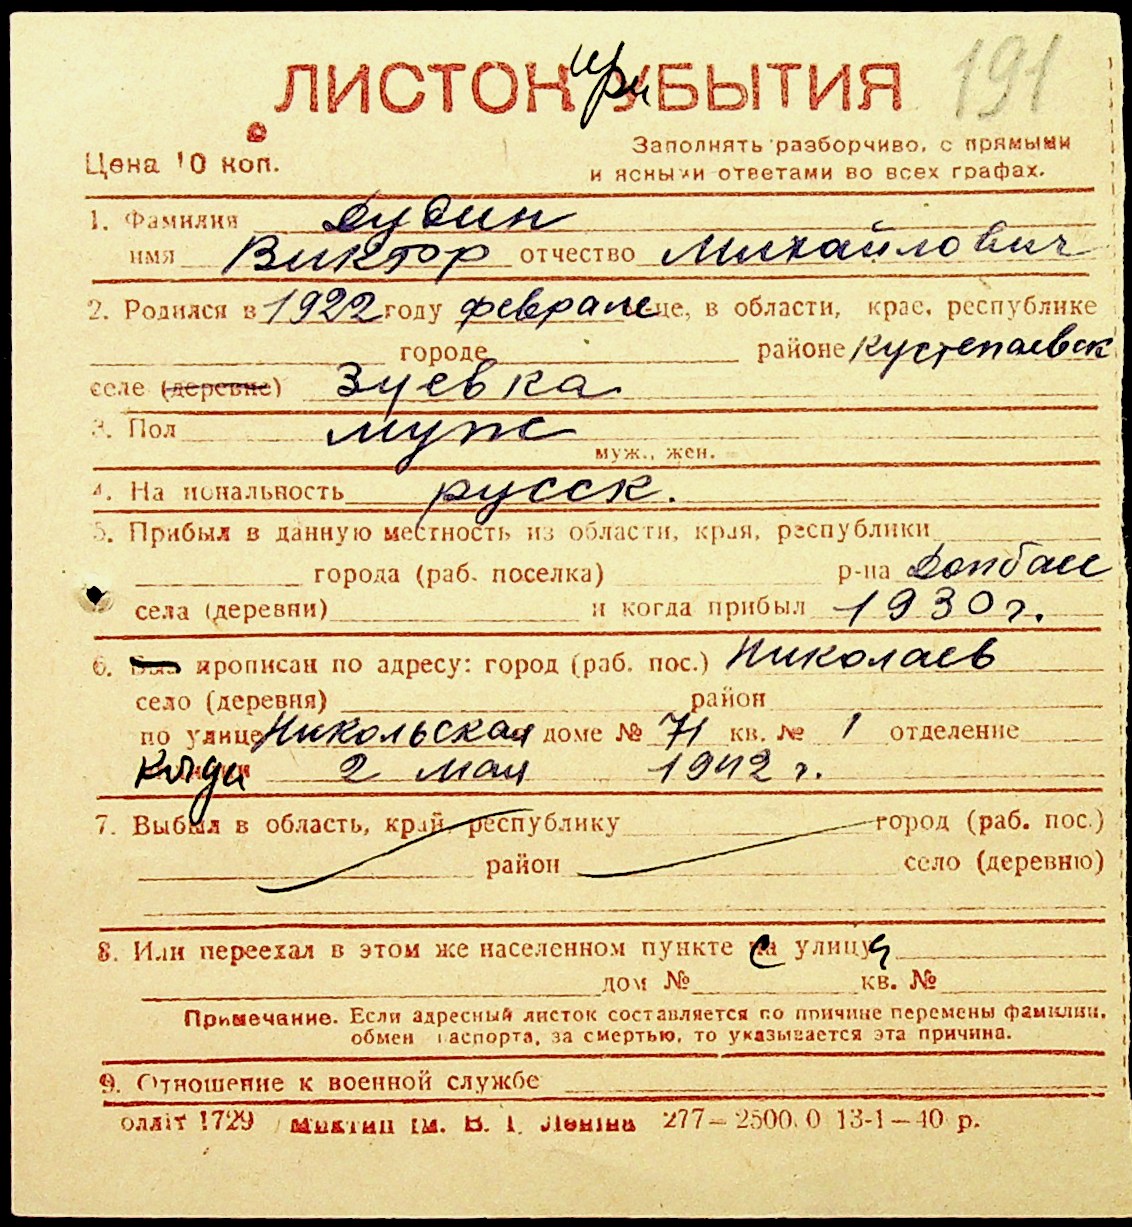 191
ЛИСТОК при УБЫТИЯ
Цена 10 коп.
Заполнять разборчиво, с прямыми
и ясными ответами во всех графах.
1. Фамилия Дудин
имя Виктор отчество Михайлович
2. Родился в 1922 году феврале -це, в области, крае, республике
городе районе Кустепаевск
селе (деревне) Зуевка
3. Пол муж
муж., жен.
4. Национальность русск.
5. Прибыл в данную местность из области, края, республики
города (раб. поселка) р-на Донбасс
села (деревни) и когда прибыл 1930 г.
6. Был прописан по адресу: город (раб. пос.) Николаев
село (деревня) район
по улице Никольская доме № 71 кв. № 1 отделение
Когда 2 мая 1942 г.
7. Выбыл в область, край, республику город (раб. пос.)
район село (деревню)
8. Или переехал в этом же населенном пункте с улицы
дом № кв. №
Примечание. Если адресный листок составляется по причине перемены фамилии,
обмен паспорта, за смертью, то указывается эта причина.
9. Отношение к военной службе
олліт 1729 ім. В. І. Леніна 277—2500.0 13-1—40 р.